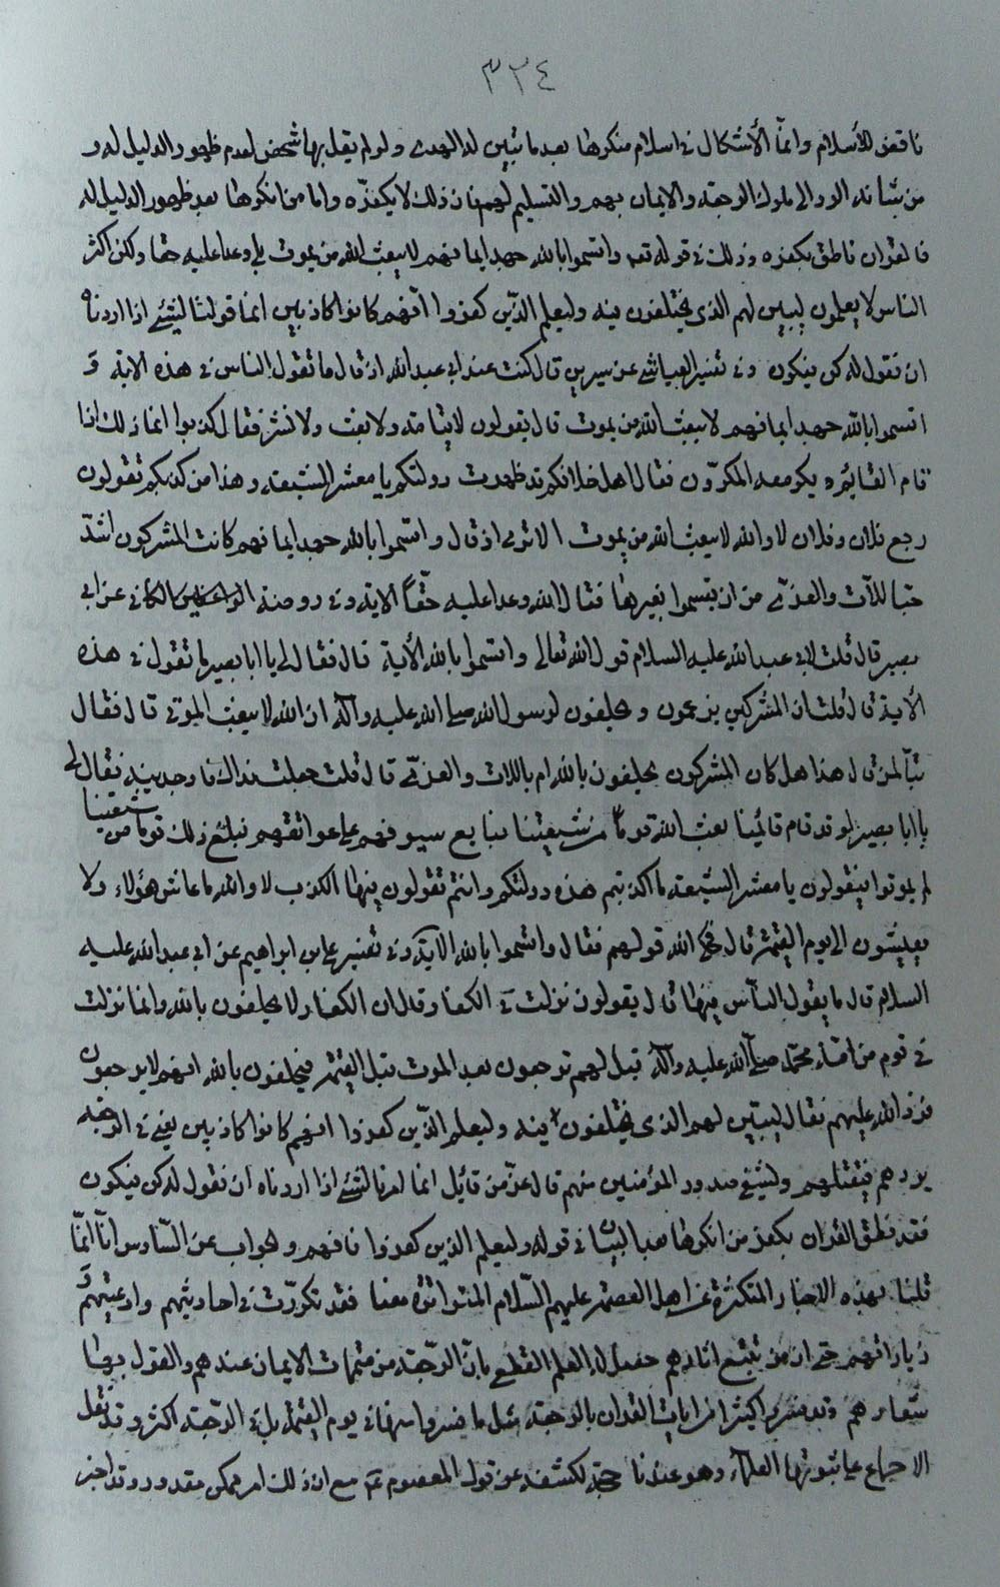 ٣٢٤
ناقض للأسلام وانمّا الأشكال في اسلام منكرها بعد ما تبين له الهدى ولو لم يقل بها شخص لعدم ظهور الدليل له و
من شانه الرد الى ملوك الرجعة والايمان بهم والتسليم لهم فان ذلك لا يكفّره واما من انكرها بعد ظهور الدليل له
فالقران ناطق بكفره وذلك في قوله تعه واقسموا بالله جهد ايمانهم لا يبعث الله من يموت بلى وعدا عليه حقا ولكن اكثر
الناس لا يعلمون ليبين لهم الذى يختلفون فيه وليعلم الذّين كفروا انّهم كانوا كاذبين انما قولنا لشئ اذا اردناه
ان نقول له كن فيكون وفي تفسير العياشي عن سيرين قال كنت عند ابي عبد الله اذ قال ما تقول الناس في هذه الاية و
اقسموا بالله جهد ايمانهم لا يبعث الله من يموت قال يقولون لا قيامة ولا بعث ولا نشر فقال كذبوا انما ذلك اذا
قام القائم يكر معه المكرّون فقال اهل خلافكم قد ظهرت دولتكم يا معشر الشيعة وهذا من كذبكم تقولون
رجع فلان وفلان لا والله لا يبعث الله من يموت الا ترى اذ قال واقسموا بالله جهد ايمانهم كانت المشركون اشدّ
حبا للاّت والعزّى من ان يقسموا بغيرها فقال الله وعدا عليه حقّاً الاية وفي روضة الواعظين الكافي عن ابي
بصير قال قلت لابي عبد الله عليه السلام قول الله تعالى واقسموا بالله الأية قال فقال لي يا ابا بصير ما تقول في هذه
الأية قال قلت ان المشركين يزعمون ويحلفون لرسول الله صلى الله عليه وآله ان الله لا يبعث الموتى قال فقال
تبّا لمن قال هذا هل كان المشركون يحلفون بالله ام باللات والعزّى قال قلت جعلت فداك فاوجدنيه فقال لي
يا ابا بصير لو قد قام قائمنا بعث الله قوماً من شيعتنا سيوفهم على عواتقهم فبلغ ذلك قوما من شيعتنا
لم يموتوا فيقولون يا معشر الشيعة ما اكذبتم هذه دولتكم وانتم تقولون فيها الكذب لا والله ما عاش هؤلاء ولا
يعيشون الى يوم القيمة قال فحكى الله قولهم فقال واقسموا بالله الآية وفي تفسير علي بن ابراهيم عن ابي عبد الله عليه
السلام قال ما يقول النّاس فيها قال يقولون نزلت في الكفار قال ان الكفار لا يحلفون بالله وانما نزلت
في قوم من امّة محمّد صلّى الله عليه وآله قيل لهم ترجعون بعد الموت قبل القيمة فيحلفون بالله انهم لا يرجعون
فرد الله عليهم فقال ليبيّن لهم الذى يختلفون فيه وليعلم الذّين كفروا انهم كانوا كاذبين يعني في الرجعة
يردهم فيقتلهم وليشفي صدور المؤمنين منهم قال عزّ من قائل انما امرنا لشئ اذا اردناه ان نقول له كن فيكون
فقد نطق القران بكفر من انكرها بعد البيان في قوله وليعلم الذين كفروا فافهم والجواب عن السّادس انّا انمّا
قلنا بهذه الاخبار المتكثرة عن اهل العصمة عليهم السّلام المتواترة معنا فقد تكرّرت في احاديثهم وادعيتهم و
زياراتهم حتى ان من تتبع اثارهم حصل له العلم القطعي بانّ الرّجعة من متممات الايمان عندهم والقول بها
شعارهم وقد فسر كثيرا من ايات القران بالرجعة مثل ما فسروا منها في يوم القيمة بل في الرّجعة اكثر وقد نقل
الاجماع على ثبوتها العلماء وهو عندنا حجة لكشفه عن قول المعصوم عم مع ان ذلك امر ممكن مقدور وقد اخبر